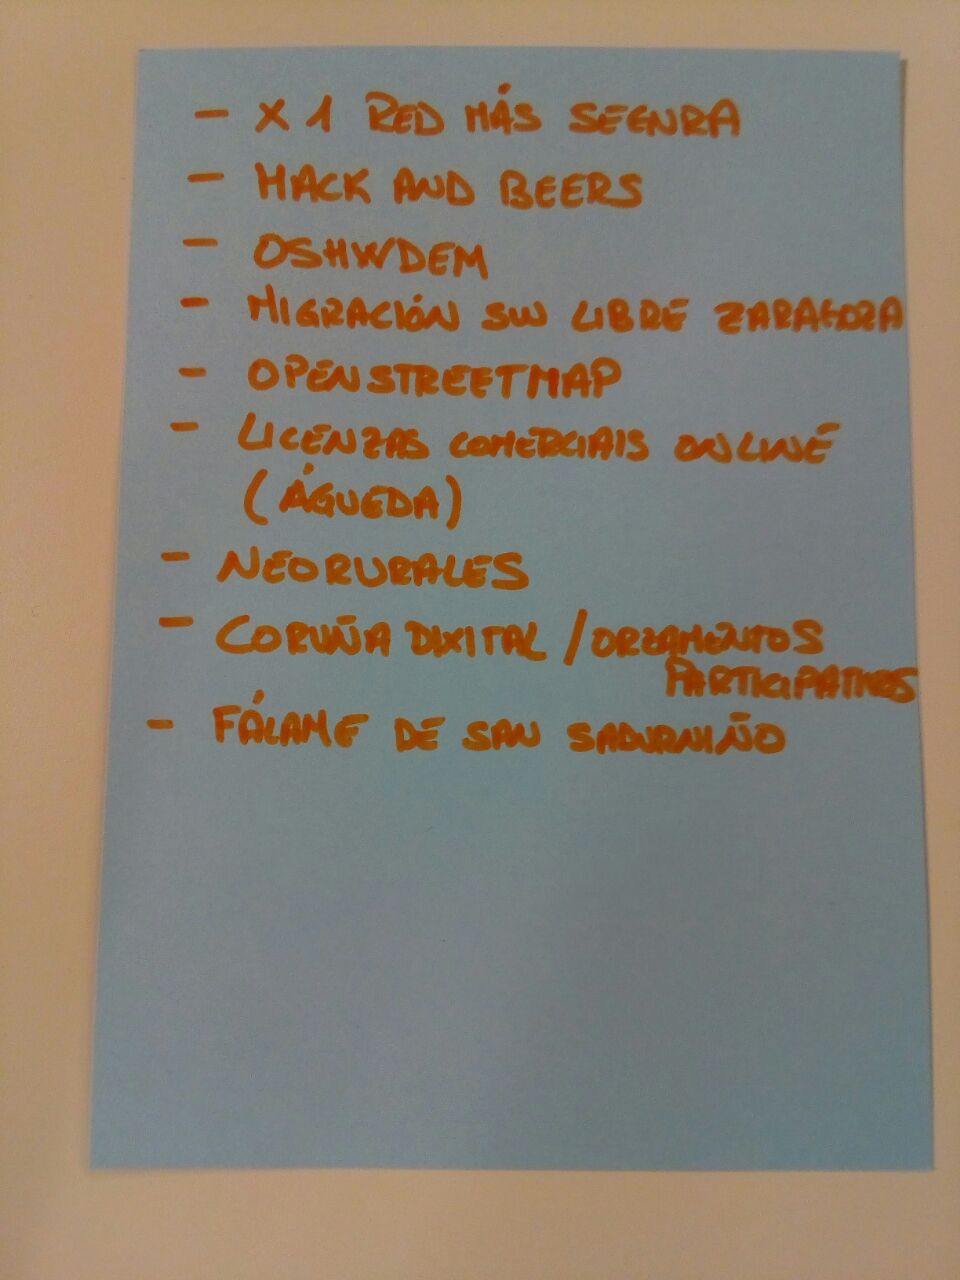 - X 1 RED MÁS SEGURA
- HACK AND BEERS
- OSHWDEM
- MIGRACIÓN SW LIBRE ZARAGOZA
- OPENSTREETMAP
- LICENZAS COMERCIAIS ONLINE
(ÁGUEDA)
- NEORURALES
- CORUÑA DIXITAL / ORZAMENTOS
PARTICIPATIVOS
- FÁLAME DE SAN SADURNIÑO